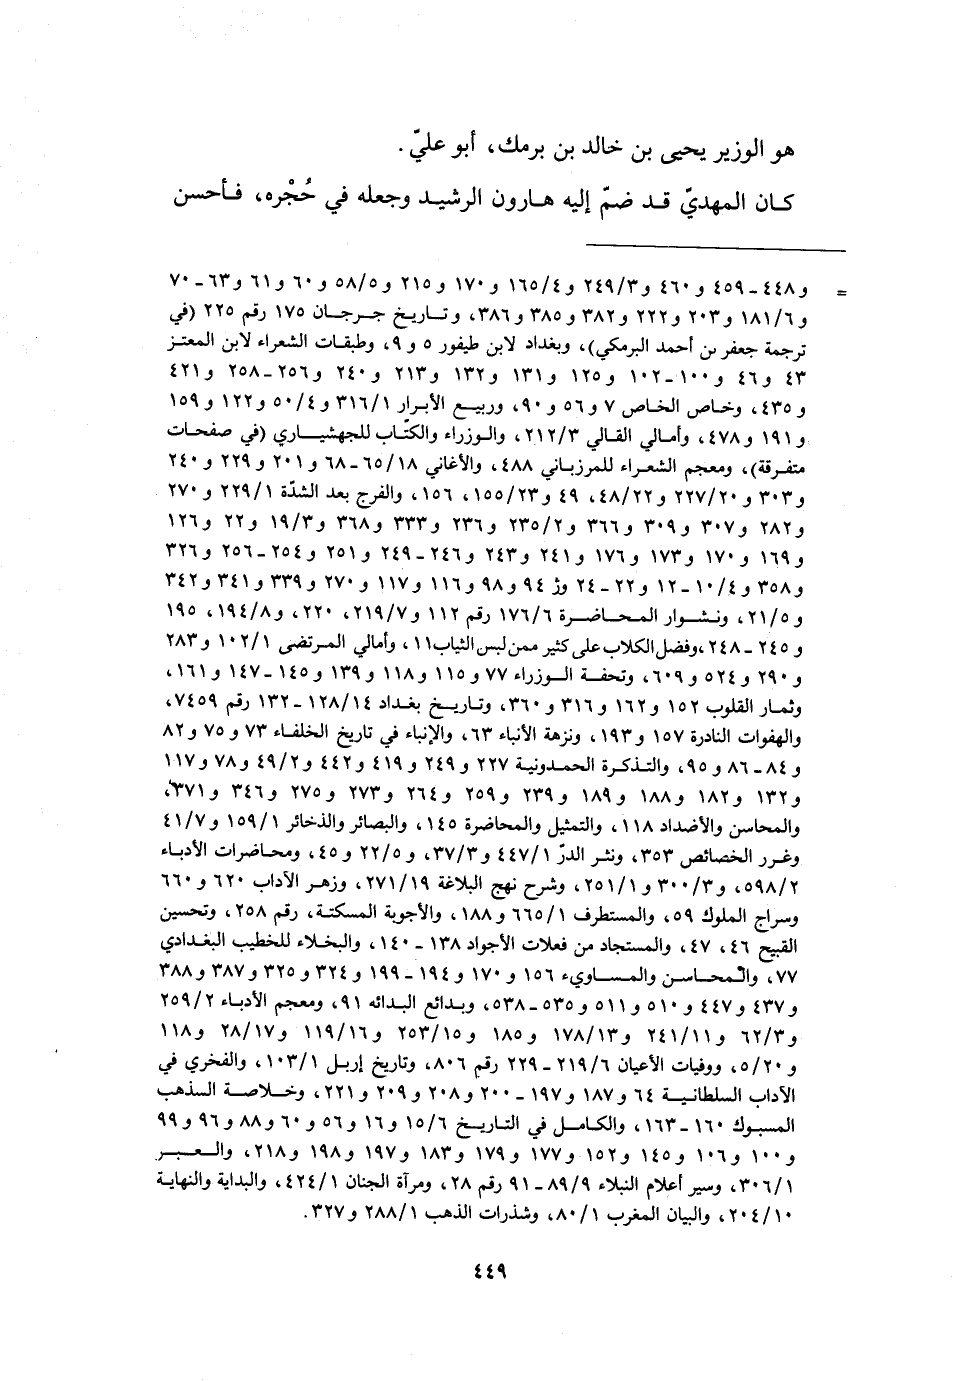 هو الوزير يحيى بن خالد بن برمك، أبو عليّ.
كان المهديّ قد ضمّ إليه هارون الرشيد وجعله في حُجْره، فأحسن
= و٤٤٨ ـ ٤٥٩ و٤٦٠ و٢٤٩/٣ و١٦٥/٤ و١٧٠ و٢١٥ و٥٨/٥ و٦٠ و٦١ و٦٣ ـ ٧٠
و١٨١/٦ و٢٠٣ و٢٢٢ و٣٨٢ و٣٨٥ و٣٨٦، وتاريخ جرجان ١٧٥ رقم ٢٢٥ (في
ترجمة جعفر بن أحمد البرمكي)، وبغداد لابن طيفور ٥ و٩، وطبقات الشعراء لابن المعتز
٤٣ و٤٦ و١٠٠ ـ ١٠٢ و١٢٥ و١٣١ و١٣٢ و٢١٣ و٢٤٠ و٢٥٦ ـ ٢٥٨ و٤٢١
و٤٣٥، وخاص الخاص ٧ و٥٦ و٩٠، وربيع الأبرار ٣١٦/١ و٥٠/٤ و١٢٢ و١٥٩
و١٩١ و٤٧٨، وأمالي القالي ٢١٢/٣، والوزراء والكتّاب للجهشياري (في صفحات
متفرقة)، ومعجم الشعراء للمرزباني ٤٨٨، والأغاني ٦٥/١٨ ـ ٦٨ و٢٠١ و٢٢٩ و٢٤٠
و٣٠٣ و٢٢٧/٢٠ و٤٨/٢٢، ٤٩ و١٥٥/٢٣، ١٥٦، والفرج بعد الشدّة ٢٢٩/١ و٢٧٠
و٢٨٢ و٣٠٧ و٣٠٩ و٣٦٦ و٢٣٥/٢ و٢٣٦ و٣٣٣ و٣٦٨ و١٩/٣ و٢٢ و١٢٦
و١٦٩ و١٧٠ و١٧٣ و١٧٦ و٢٤١ و٢٤٣ و٢٤٦ ـ ٢٤٩ و٢٥١ و٢٥٤ ـ ٢٥٦ و٣٢٦
و٣٥٨ و١٠/٤ ـ ١٢ و٢٢ ـ ٢٤ وژ ٩٤ و٩٨ و١١٦ و١١٧ و٢٧٠ و٣٣٩ و٣٤١ و٣٤٢
و٢١/٥، ونشوار المحاضرة ١٧٦/٦ رقم ١١٢ و٢١٩/٧، ٢٢٠، و١٩٤/٨، ١٩٥
و٢٤٥ ـ ٢٤٨، وفضل الكلاب على كثير ممن لبس الثياب ١١، وأمالي المرتضى ١٠٢/١ و٢٨٣
و٢٩٠ و٥٢٤ و٦٠٩، وتحفة الوزراء ٧٧ و١١٥ و١١٨ و١٣٩ و١٤٥ ـ ١٤٧ و١٦١،
وثمار القلوب ١٥٢ و١٦٢ و٣١٦ و٣٦٠، وتاريخ بغداد ١٢٨/١٤ ـ ١٣٢ رقم ٧٤٥٩،
والهفوات النادرة ١٥٧ و١٩٣، ونزهة الأنباء ٦٣، والإنباء في تاريخ الخلفاء ٧٣ و٧٥ و٨٢
و٨٤ ـ ٨٦ و٩٥، والتذكرة الحمدونية ٢٢٧ و٢٤٩ و٤١٩ و٤٤٢ و٤٩/٢ و٧٨ و١١٧
و١٣٢ و١٨٢ و١٨٨ و١٨٩ و٢٣٩ و٢٥٩ و٢٦٤ و٢٧٣ و٢٧٥ و٣٤٦ و٣٧١،
والمحاسن والأضداد ١١٨، والتمثيل والمحاضرة ١٤٥، والبصائر والذخائر ١٥٩/١ و٤١/٧
وغرر الخصائص ٣٥٣، ونثر الدرّ ٤٤٧/١ و٣٧/٣، و٢٢/٥ و٤٥، ومحاضرات الأدباء
٥٩٨/٢، و٣٠٠/٣ و٢٥١/١، وشرح نهج البلاغة ٢٧١/١٩، وزهر الآداب ٦٢٠ و٦٦٠
وسراج الملوك ٥٩، والمستطرف ٦٦٥/١ و١٨٨، والأجوبة المسكتة، رقم ٢٥٨، وتحسين
القبيح ٤٦، ٤٧، والمستجاد من فعلات الأجواد ١٣٨ ـ ١٤٠، والبخلاء للخطيب البغدادي
٧٧، والمحاسن والمساويء ١٥٦ و١٧٠ و١٩٤ ـ ١٩٩ و٣٢٤ و٣٢٥ و٣٨٧ و٣٨٨
و٤٣٧ و٤٤٧ و٥١٠ و٥١١ و٥٣٥ ـ ٥٣٨، وبدائع البدائه ٩١، ومعجم الأدباء ٢٥٩/٢
و٦٢/٣ و٢٤١/١١ و١٧٨/١٣ و١٨٥ و٢٥٣/١٥ و١١٩/١٦ و٢٨/١٧ و١١٨
و٥/٢٠، ووفيات الأعيان ٢١٩/٦ ـ ٢٢٩ رقم ٨٠٦، وتاريخ إربل ١٠٣/١، والفخري في
الآداب السلطانية ٦٤ و١٨٧ و١٩٧ ـ ٢٠٠ و٢٠٨ و٢٠٩ و٢٢١، وخلاصة الذهب
المسبوك ١٦٠ ـ ١٦٣، والكامل في التاريخ ١٥/٦ و١٦ و٥٦ و٦٠ و٨٨ و٩٦ و٩٩
و١٠٠ و١٠٦ و١٤٥ و١٥٢ و١٧٧ و١٧٩ و١٨٣ و١٩٧ و١٩٨ و٢١٨، والعبر
٣٠٦/١، وسير أعلام النبلاء ٨٩/٩ ـ ٩١ رقم ٢٨، ومرآة الجنان ٤٢٤/١، والبداية والنهاية
٢٠٤/١٠، والبيان المغرب ٨٠/١، وشذرات الذهب ٢٨٨/١ و٣٢٧.
٤٤٩